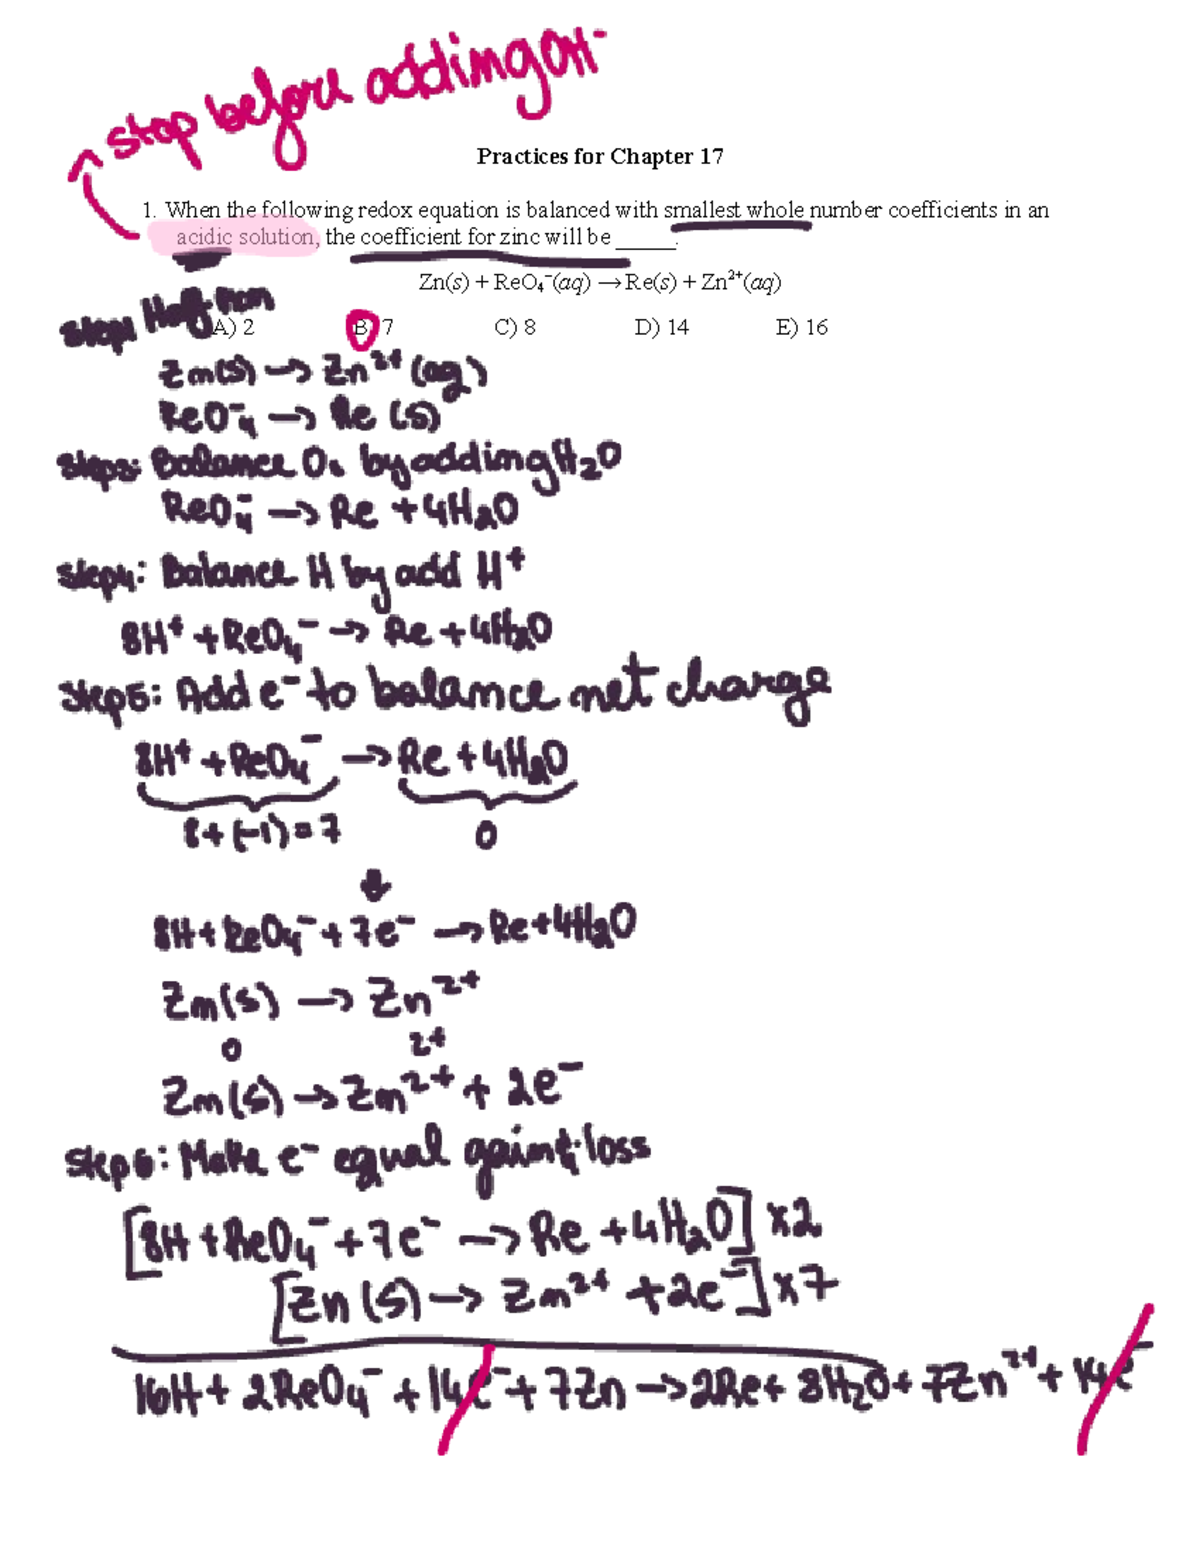 stop before adding OH⁻
Practices for Chapter 17
1. When the following redox equation is balanced with smallest whole number coefficients in an
acidic solution, the coefficient for zinc will be _____.
Zn(s) + ReO₄⁻(aq) → Re(s) + Zn²⁺(aq)
Step1 Half-rxn
A) 2 B) 7 C) 8 D) 14 E) 16
Zn(s) → Zn²⁺ (aq)
ReO⁻₄ → Re (s)
Step3: Balance O. by adding H₂O
ReO₄⁻ → Re + 4H₂O
Step4: Balance H by add H⁺
8H⁺ + ReO₄⁻ → Re + 4H₂O
Step5: Add e⁻ to balance net charge
8H⁺ + ReO₄⁻ → Re + 4H₂O
8+(-1)=7 0
↓
8H+ ReO₄⁻ + 7e⁻ → Re+4H₂O
Zn(s) → Zn²⁺
0 2+
Zn(s) → Zn²⁺ + 2e⁻
Step6: Make e⁻ equal gain & loss
[8H + ReO₄⁻ + 7e⁻ → Re + 4H₂O] x2
[Zn (s) → Zn²⁺ + 2e⁻] x7
16H+ 2ReO₄⁻ + 14e⁻ + 7Zn → 2Re+ 8H₂O + 7Zn²⁺ + 14e⁻